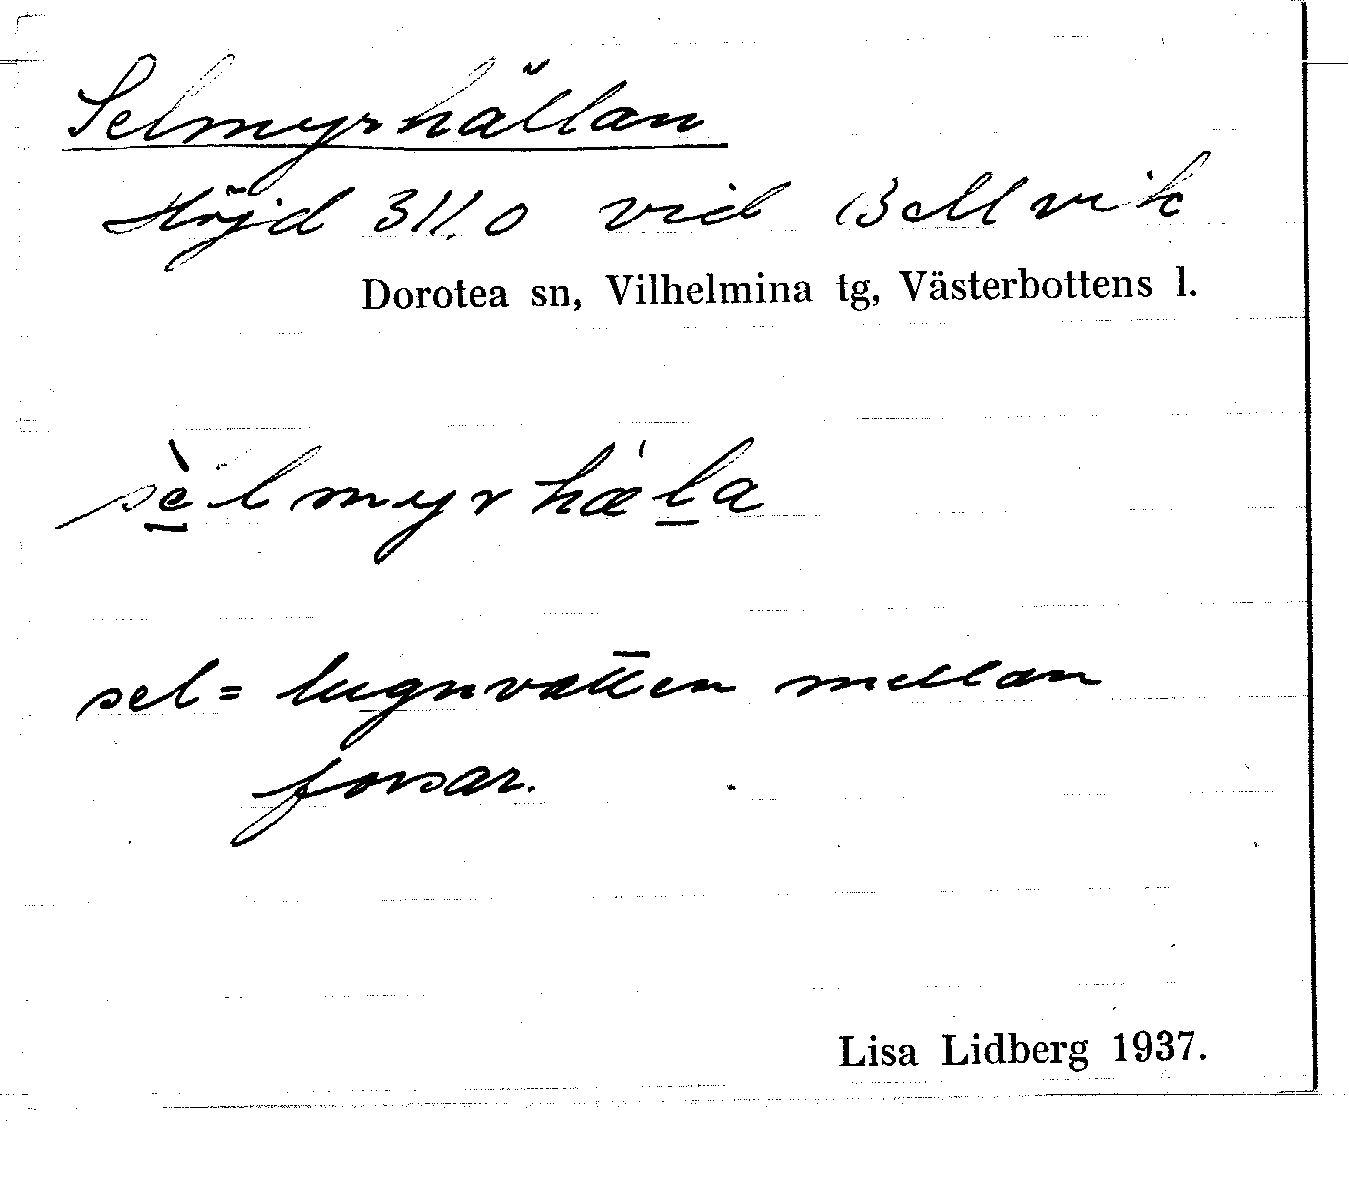 Selmyrhällan
Höjd 311.0 vid Bellvik
Dorotea sn, Vilhelmina tg, Västerbottens l.
sè̱lmyrhǽḻa
sel = lugnvatten mellan
forsar.
Lisa Lidberg 1937.